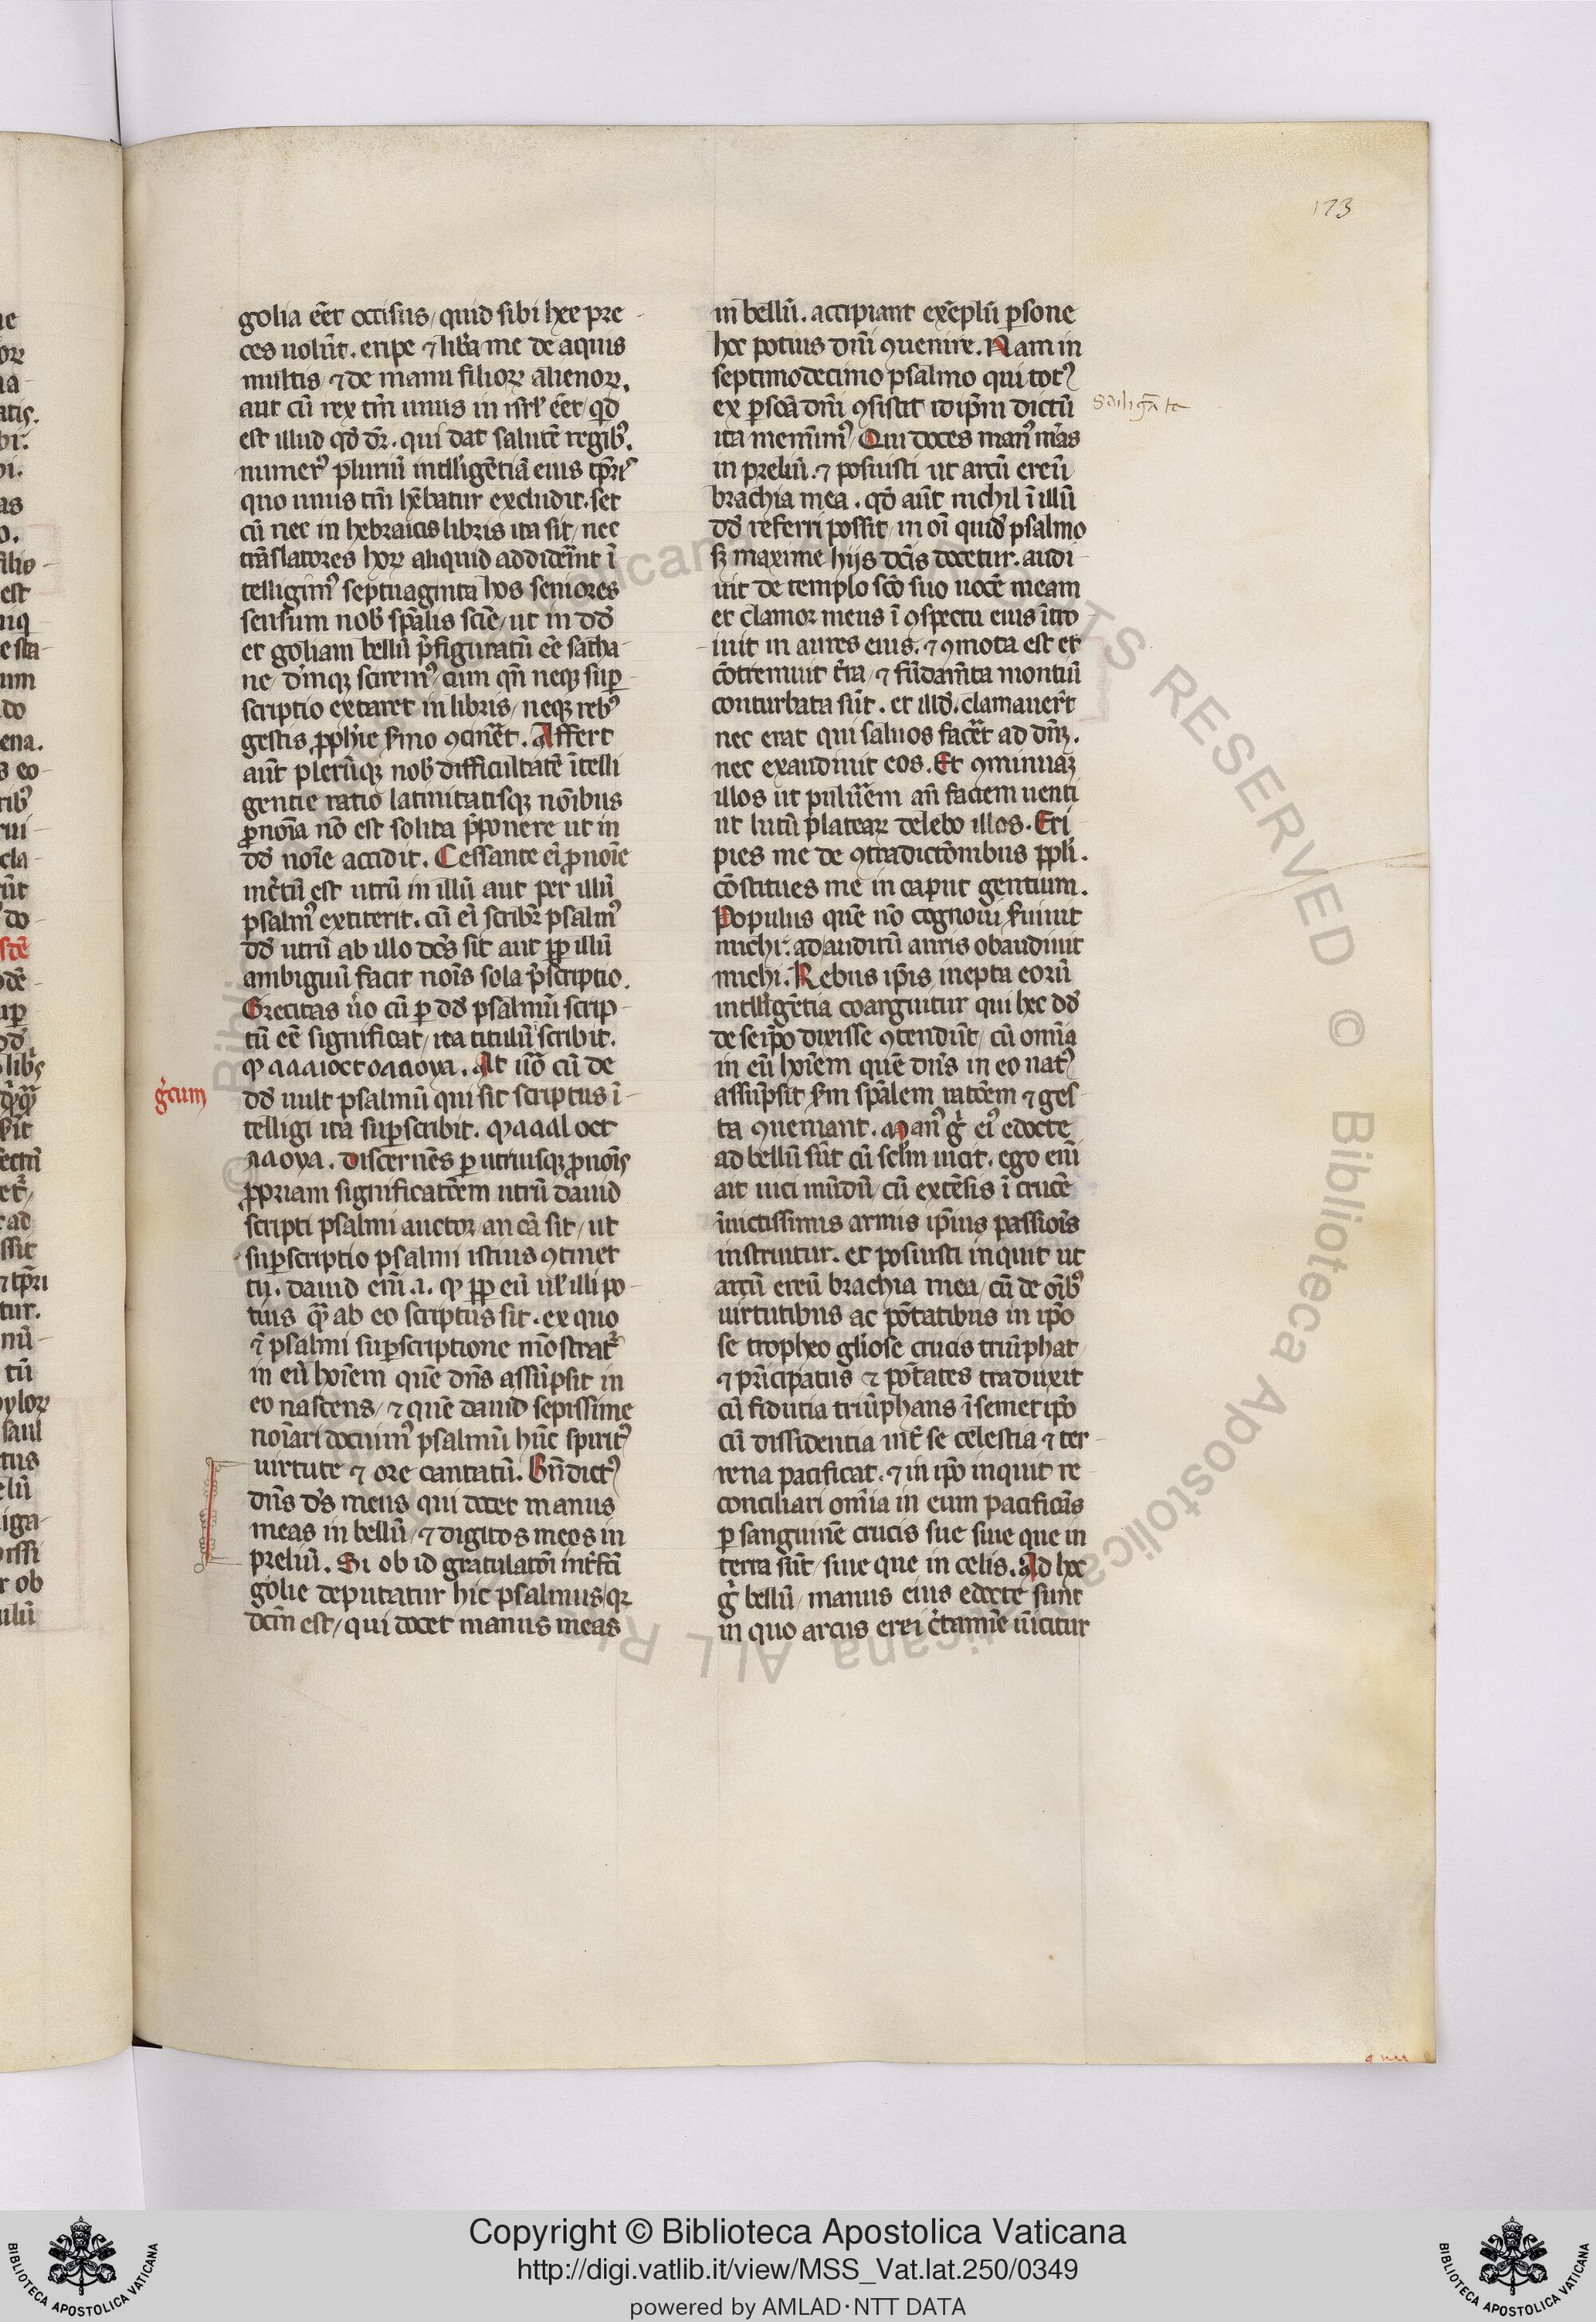 173
golia eēt occisus / quid sibi hee pre-
ces uolūt. eripe ⁊ lib̄a me de aquis
multis / ⁊ de manu filioꝝ alienoꝝ.
aut cū rex tm̄ unus in isrł eēt / qđ
est illud qđ dr̄. qui dat salutē regibꝰ.
numerꝰ pluriū intłłigētiā eius
quo unus tm̄ hēbatur excludit. set
cū nec in hebraicis libris ita sit / nec
trāslatores hoꝝ aliquid addider̄nt ī
telligimꝰ septuaginta hos seniores
sensum nob̄ sp̄alis sciē / ut in dđ
et goliam bellū p̄figuratū eē satha-
ne / dm̄qꝫ sciremꝰ / cum qn̄ neqꝫ suꝑ
scriptio extaret in libris / neqꝫ rebꝰ
gestis ꝓph̄ie s̄mo ꝯtinēt. Affert
aūt plerūqꝫ nob̄ difficultatē ītelli
gentie ratio latinitatisqꝫ nōibus
ꝓnoīa nō est solita p̄ponere ut in
dđ noīe accidit. Cessante eī ꝓnoīe
incētū est utrū in illū aut per illū
psalmꝰ extiterit. cū eī scribr̄ psalmꝰ
dđ utrū ab illo dcs̄ sit aut ꝓꝑ illū
ambiguū facit noīs sola p̄scriptio.
Grecitas ūo cū ꝑ dđ psalmū scrip-
tū eē significat / ita titulū scribit.
At ūo cū de
gr̄cum
dđ uult psalmū qui sit scriptus ī-
telligi ita suꝑscribit.
Discernēs ꝑ utriusqꝫ ꝓnoīs
ꝓpriam significatōem utrū dauid
scripti psalmi auctor / an cā sit / ut
suꝑscriptio psalmi istius ꝯtinet
dauid em̄ .i. ꝙ ꝓꝑ eū uł illi po-
tius qͣ̄ ab eo scriptus sit. ex quo
⁊ psalmi suꝑscriptione mōstratᷣ
in eū hoīem quē dn̄s assūpsit in
eo nascens / ⁊ quē dauid sepissime
noīari docuimꝰ psalmū hūc spiritꝰ
uirtute ⁊ ore cantatū. Bn̄dictꝰ
dn̄s ds̄ meus qui docet manus
meas in bellū / ⁊ digitos meos in
preliū. Si ob id gratulatōī int̄fcī
golie deputatur hic psalmus / qꝛ
dcm̄ est / qui docet manus meas
in bellū. accipiant exēplū ꝑsone
hec potius dn̄i ꝯuenire. Nam in
septimodecimo psalmo qui totꝰ
ex ꝑsōa dn̄i ꝯsistit id ip̄m dictū
ita meminimꝰ / Qui doces manꝰ mās
in preliū. ⁊ posuisti ut arcū ereū
brachia mea. qđ aūt nichil ī illū
dđ referri possit / in oī quid̄ psalmo
sꝫ maxime hijs dcīs docetur. audi-
uit de templo scō suo uocē meam
et clamor meus ī ꝯspectu eius ītro
iuit in aures eius. ⁊ ꝯmota est et
cōtremuit t̄ra / ⁊ fūdam̄ta montiū
conturbata sūt. et illđ. clamauer̄t
nec erat qui saluos facēt ad dn̄ꝫ.
nec exaudiuit eos. Et ꝯminuaꝫ
illos ut puluēm an̄ faciem uenti
ut lutū plateaꝝ delebo illos. Eri
pies me de ꝯtradictōnibus ppłi.
cōstitues me in caput gentium.
Populus quē nō cognoui s̄uiuit
michi: ad auditū auris obaudiuit
michi. Rebus ip̄is inepta eorū
intłłigētia coarguitur qui hec dđ
de seip̄o dixisse ꝯtendūt / cū omīa
in eū hoīem quē dn̄s in eo natꝰ
assūpsit s̄m sp̄alem ratōem ⁊ ges
ta ꝯueniant. Manꝰ gͦ eiꝰ edocte
ad bellū sūt cū sclm̄ uicit. ego em̄
ait uici mūdū / cū extēsis ī crucē
īuictissimus armis ip̄ius passiois̄
instruitur. et posuisti inquit ut
arcū ereū brachia mea / cū de oībꝰ
uirtutibus ac potātibus in ip̄o
se tropheo gliōse crucis triūphat /
⁊ pr̄ncipatus ⁊ potātes traduxit
cū fiducia triūphans ī semet ip̄o
cū dissidentia int̄ se celestia ⁊ ter-
rena pacificat. ⁊ in ip̄o inquit re-
conciliari omīa in eum pacificās
ꝑ sanguinē crucis sue siue que in
terra sūt / siue que in celis. Ad hec
gͦ bellū / manus eius edocte sunt
in quo arcus erei c̄tamīe uīcitur
Copyright © Biblioteca Apostolica Vaticana
http://digi.vatlib.it/view/MSS_Vat.lat.250/0349
powered by AMLAD·NTT DATA
BIBLIOTECA APOSTOLICA VATICANA
BIBLIOTECA APOSTOLICA VATICANA